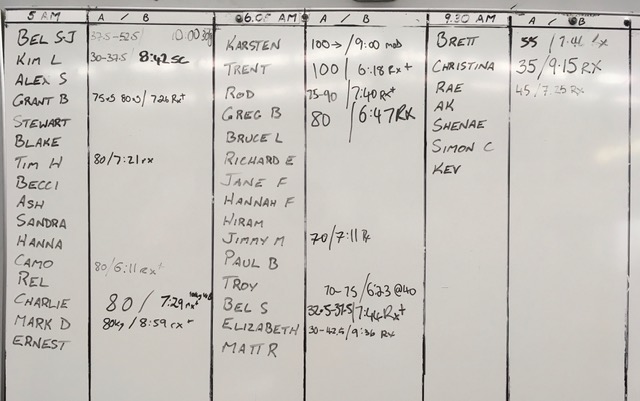 5 AM A / B
BEL SJ 37.5-52.5/ 10:00
KIM L 30-37.5/ 8:42 SC
ALEX S
GRANT B
STEWART
BLAKE
TIM H 80/7:21 rx
BECCI
ASH
SANDRA
HANNA
CAMO 80/6:11 RX+
REL
CHARLIE 80 / 7:29 rx+
MARK D 80kg / 8:59 rx+
ERNEST
6.05 AM A / B
KARSTEN 100 / 9:00 mod
TRENT 100 / 6:18 Rx+
ROD 75-90 / 7:40 Rx+
GREG B 80 / 6:47 RX
BRUCE L
RICHARD E
JANE F
HANNAH F
HIRAM
JIMMY M 70/7:11 Rx
PAUL B
TROY 70-75 / 6:23 @40
BEL S 32.5-37.5/7:44 RX+
ELIZABETH 30-42.5/9:36 RX
MATT R
9.30 AM A / B
BRETT 55/ 7:41 Rx
CHRISTINA 35/9:15 RX
RAE 45 / 7:25 Rx
AK
SHENAE
SIMON C
KEV